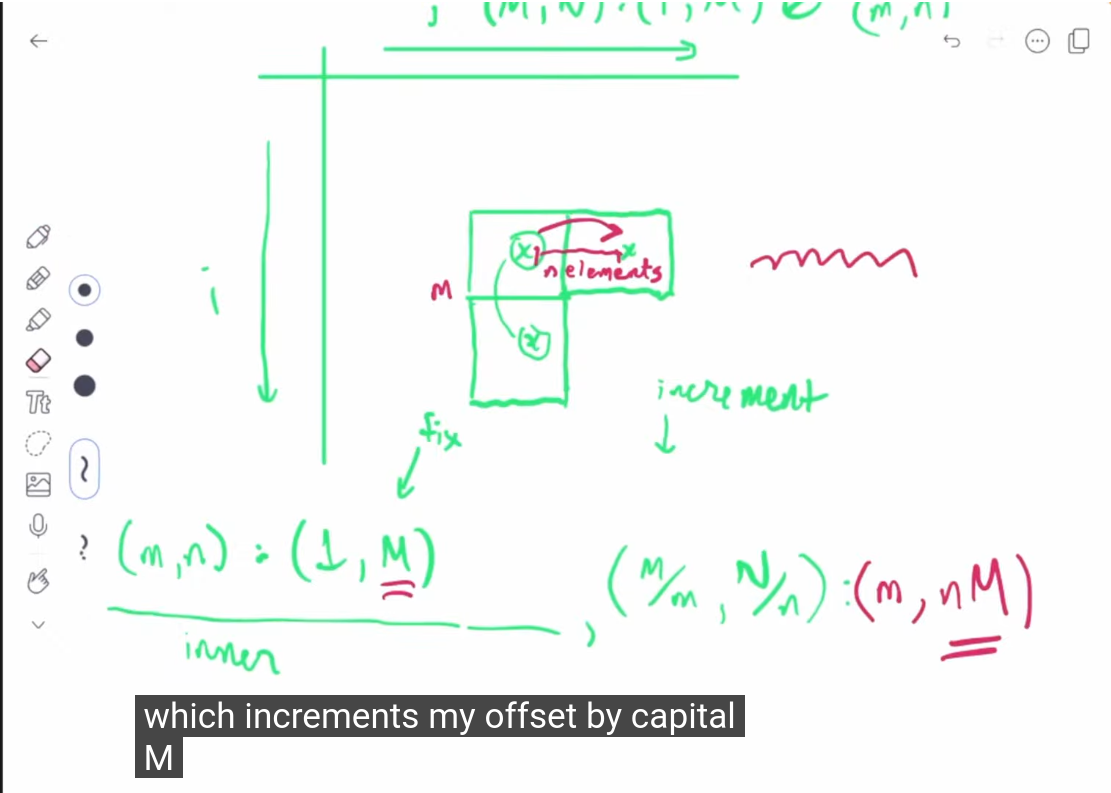 ; (M,N):(1,M) @ (m,n)
x x
n elements
M
x
i
increment
fix
Tt
(m,n) : (1, M) , (M/m, N/n) : (m, nM)
?
inner
which increments my offset by capital
M